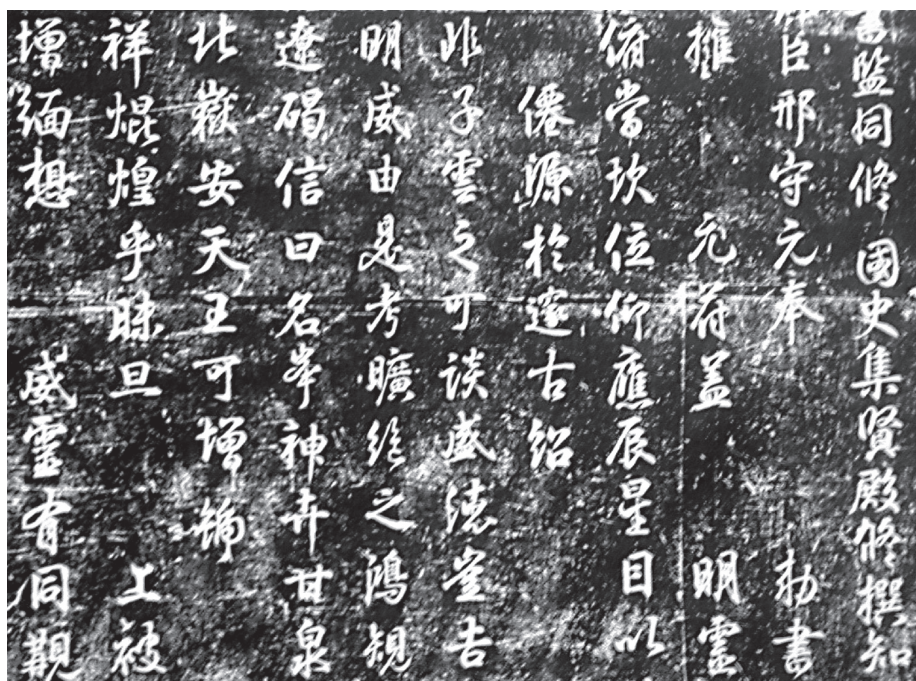 書監同脩 國史集賢殿脩撰知
臣邢守元奉 勅書
擁 元符蓋 明靈
俯當坎位仰應辰星目以
僊源於邃古紹
非子雲之可談盛德豈告
明威由是考曠經之鴻規
遼碣信曰名峯神卉甘泉
北嶽安天王可增號
祥焜煌乎昧旦 上被
增緬想 威靈有同覯